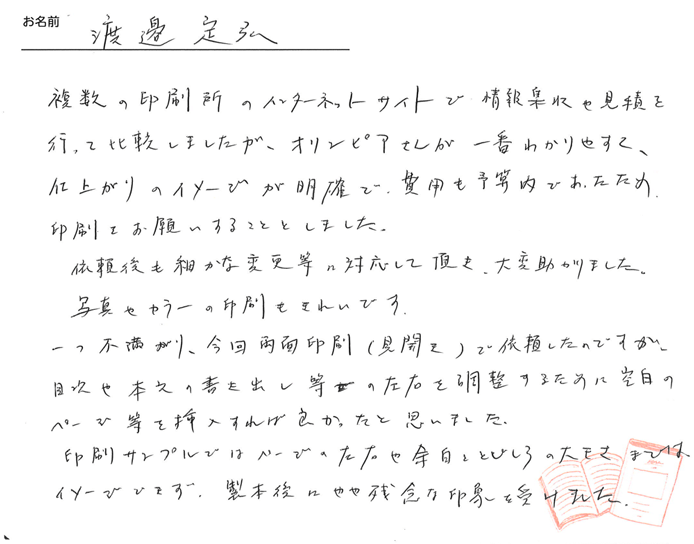 お名前 渡邉定弘
複数の印刷所のインターネットサイトで情報集収や見積を
行って比較しましたが、オリンピアさんが一番わかりやすく、
仕上がりのイメージが明確で、費用も予算内であったため、
印刷をお願いすることとしました。
依頼後も細かな変更等に対応して頂き、大変助かりました。
写真やカラーの印刷もきれいです。
一つ不満があり、今回両面印刷(見開き)で依頼したのですが、
目次や本文の書き出し等の左右を調整するために空白の
ページ等を挿入すれば良かったと思いました。
印刷サンプルではページの左右や余白ととじしろの大きさまでは
イメージできず、製本後にやや残念な印象を受けました。